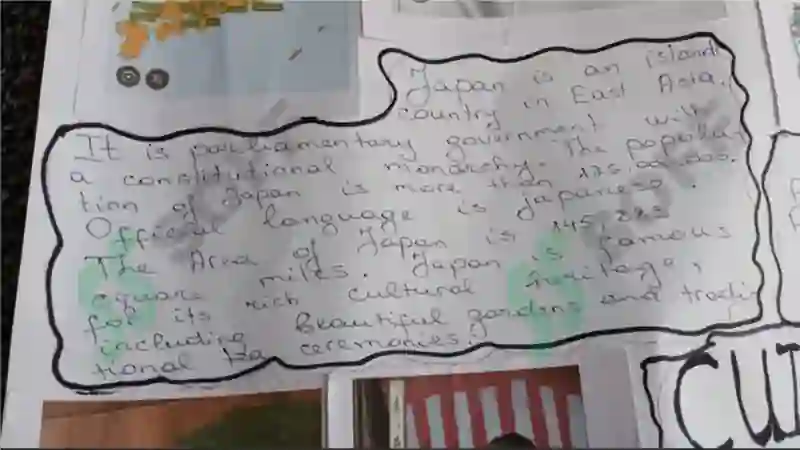 Japan is an island
country in East Asia.
It is parliamentary government with
a constitutional monarchy. The popula-
tion of Japan is more than
Official language is Japanese.
The Area of Japan is 145,
square miles. Japan is famous
for its rich cultural heritage,
including beautiful gardens and tradi-
tional tea ceremonies.
CUL